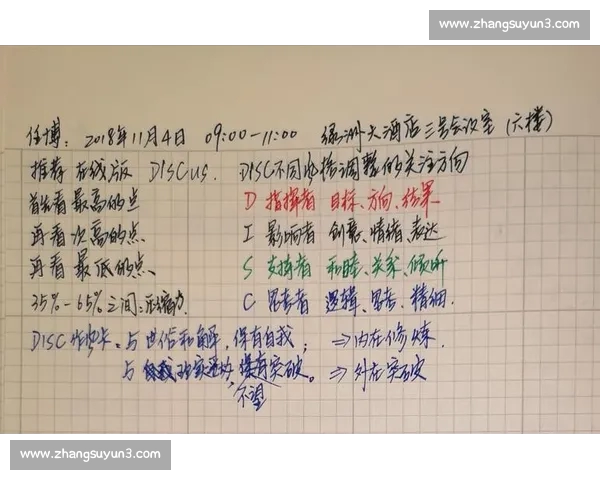 www.zhangsuyun3.com
任博: 2018年11月4日 09:00-11:00 绿洲大酒店三号会议室(六楼)
推荐 在线版 DISCus. DISC不同风格调整的关注方向
首先看最高的点 D 指挥者 目标、方向、结果
再看次高的点 I 影响者 创意、情绪、表达
再看最低的点、 S 支持者 和睦、关系、倾听
35%-65%之间: C 思考者 逻辑、思考、精细.
DISC 与世俗和解,保有自我; ⇒内在修炼.
与 突破。⇒外在突破
不望
www.zhangsuyun3.com